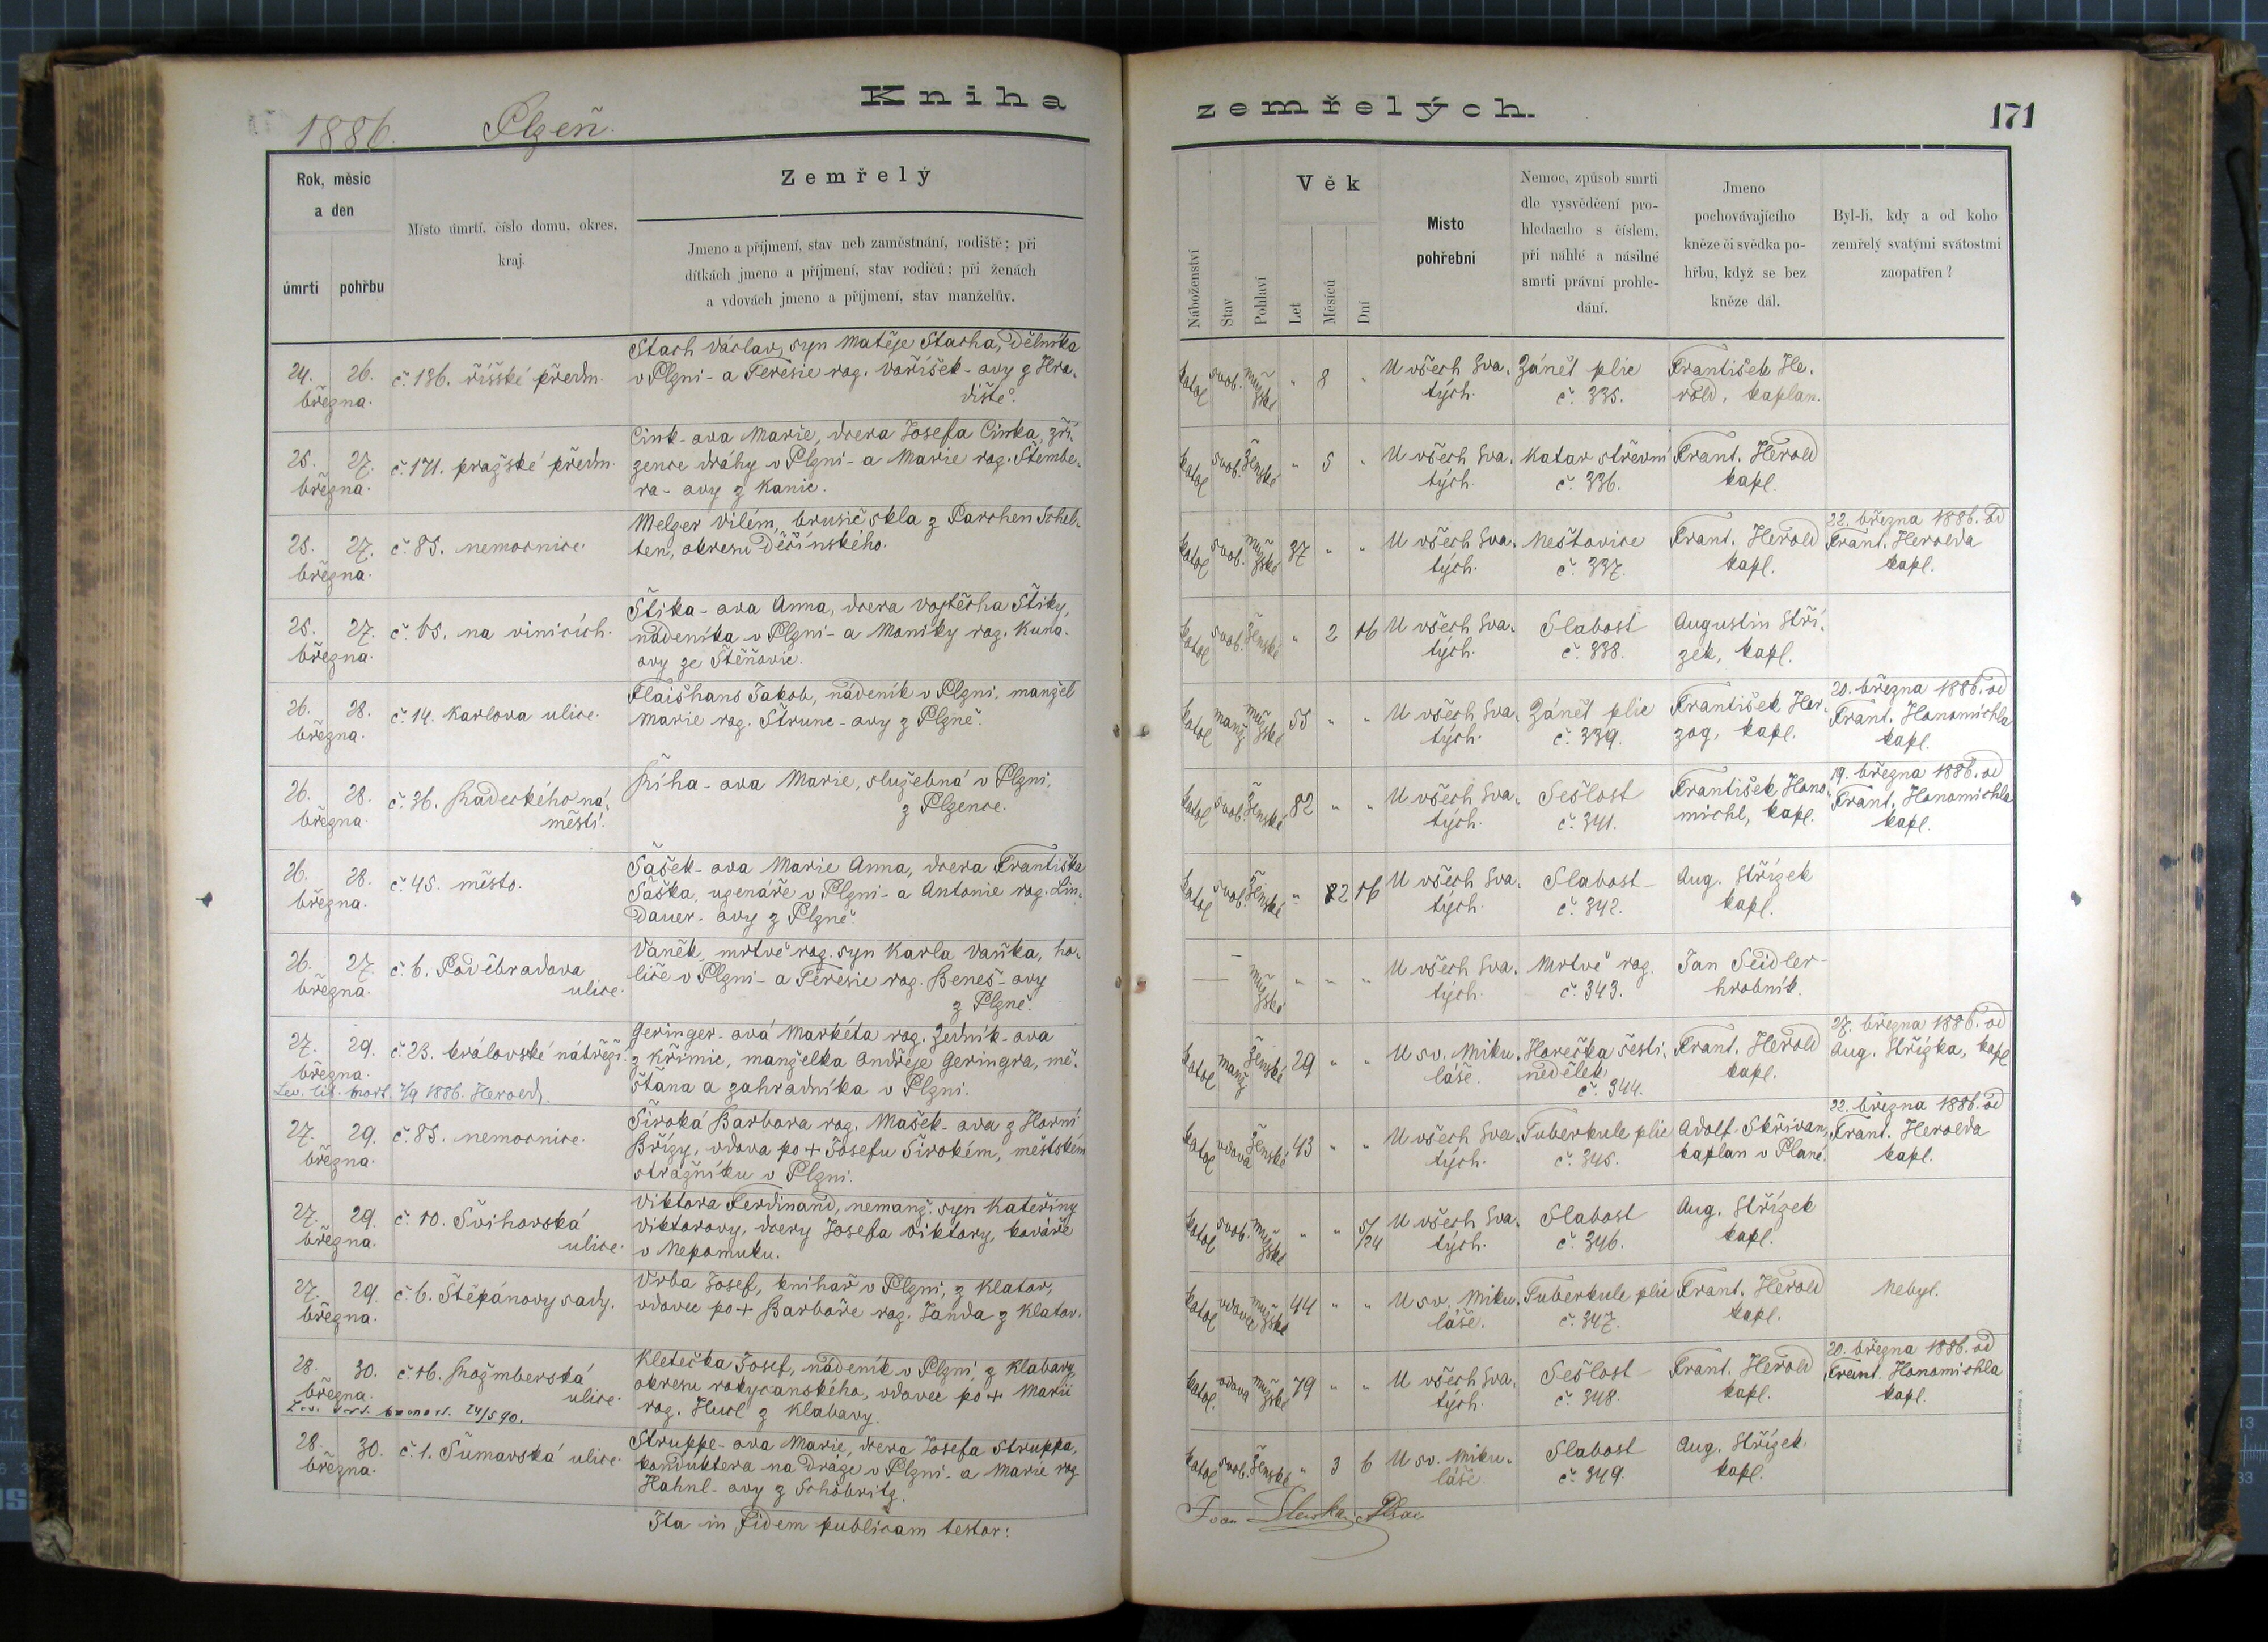 Kniha
zemřelých.
171
1886. Plzeň.
Rok, měsíc
a den
úmrtí
pohřbu
Místo úmrtí, číslo domu, okres,
kraj.
Zemřelý
Jmeno a příjmení, stav neb zaměstnání, rodiště; při
dítkách jmeno a příjmení, stav rodičů; při ženách
a vdovách jmeno a příjmení, stav manželův.
Náboženství
Stav
Pohlaví
Věk
Let
Měsíců
Dní
Místo
pohřební
Nemoc, způsob smrti
dle vysvědčení pro-
hledacího s číslem,
při náhlé a násilné
smrti právní prohle-
dání.
Jmeno
pochovávajícího
kněze či svědka po-
hřbu, když se bez
kněze dál.
Byl-li, kdy a od koho
zemřelý svatými svátostmi
zaopatřen?
24. 26.
března.
č. 136. říšské předm.
Stach Václav, syn Matěje Stacha, dělníka
v Plzni - a Teresie roz. Voříšek-ovy z Hra-
diště.
katol svob. mužské " 8 "
U všech Sva-
tých.
Zánět plic
č. 335.
František He-
rold, kaplan.
25. 27.
března.
č. 171. pražské předm.
Cink-ova Marie, dcera Josefa Cinka, zří-
zence dráhy v Plzni - a Marie roz. Štembe-
ra-ovy z Kanic.
katol svob. ženské " 5 "
U všech Sva-
tých.
Katar střevní
č. 336.
Frant. Herold
kapl.
25. 27.
března.
č. 85. nemocnice.
Melzer Vilém, brusič skla z Parchen Schel-
ten, okresu Děčínského.
katol svob. mužské 37 " "
U všech Sva-
tých.
Neštovice
č. 337.
Frant. Herold
kapl.
22. března 1886. od
Frant. Herolda
kapl.
25. 27.
března.
č. 65. na vinicích.
Štika-ova Anna, dcera Vojtěcha Štiky,
nádeníka v Plzni - a Moniky roz. Kuna-
ovy ze Štěňovic.
katol svob. ženské " 2 16
U všech Sva-
tých.
Slabost
č. 338.
Augustin Stří-
zek, kapl.
26. 28.
března.
č. 14. Karlova ulice.
Flaišhans Jakob, nádeník v Plzni, manžel
Marie roz. Štrunc-ovy z Plzně.
katol manž mužské 55 " "
U všech Sva-
tých.
Zánět plic
č. 339.
František Her-
zog, kapl.
20. března 1886. od
Frant. Honomichla
kapl.
26. 28.
března.
č. 36. Radeckého ná-
městí.
Říha-ova Marie, služebná v Plzni,
z Plzence.
katol svob. ženské 82 " "
U všech Sva-
tých.
Sešlost
č. 341.
František Hono-
michl, kapl.
19. března 1886. od
Frant. Honomichla
kapl.
26. 28.
března.
č. 45. město.
Šašek-ova Marie Anna, dcera Františka
Šaška, uzenáře v Plzni - a Antonie roz. Lin-
dauer-ovy z Plzně.
katol svob. ženské " 2 16
U všech Sva-
tých.
Slabost
č. 342.
Aug. Střízek
kapl.
26. 27.
března.
č. 6. Poděbradova
ulice.
Vaněk, mrtvě roz. syn Karla Vaňka, ho-
liče v Plzni - a Teresie roz. Beneš-ovy
z Plzně.
— — mužské " " "
U všech Sva-
tých.
Mrtvě roz.
č. 343.
Jan Seidler
hrobník.
27. 29.
března.
č. 23. královské nábřeží.
Geringer-ová Markéta roz. Zedník-ova
z Křimic, manželka Ondřeje Geringra, mě-
šťana a zahradníka v Plzni.
1886. Herold.
katol manž ženské 29 " "
U sv. Miku-
láše.
Horečka šesti-
nedělek
č. 344.
Frant. Herold
kapl.
27. března 1886. od
Aug. Střízka, kapl
27. 29.
března.
č. 85. nemocnice.
Široká Barbora roz. Mašek-ova z Horní
Břízy, vdova po + Josefu Širokém, městském
strážníku v Plzni.
katol vdova ženské 43 " "
U všech Sva-
tých.
Tuberkule plic
č. 345.
Adolf Skřivan,
kaplan v Plané.
22. března 1886. od
Frant. Herolda
kapl.
27. 29.
března.
č. 10. Švihovská
ulice.
Viktora Ferdinand, nemanž. syn Kateřiny
Viktorovy, dcery Josefa Viktory, kováře
v Nepomuku.
katol svob. mužské " " 5/24
U všech Sva-
tých.
Slabost
č. 346.
Aug. Střízek
kapl.
27. 29.
března.
č. 6. Štěpánovy sady.
Vrba Josef, knihař v Plzni, z Klatov,
vdovec po + Barboře roz. Janda z Klatov.
katol vdovec mužské 44 " "
U sv. Miku-
láše.
Tuberkule plic
č. 347.
Frant. Herold
kapl.
Nebyl.
28. 30.
března.
č. 16. Rožmberská
ulice.
Kletečka Josef, nádeník v Plzni, z Klabavy,
okresu rokycanského, vdovec po + Marii
roz. Hucl z Klabavy.
24/5 90.
katol. vdova mužské 79 " "
U všech Sva-
tých.
Sešlost
č. 348.
Frant. Herold
kapl.
20. března 1886. od
Frant. Honomichla
kapl.
28. 30.
března.
č. 1. Šumavská ulice.
Struppe-ova Marie, dcera Josefa Struppa,
konduktera na dráze v Plzni - a Marie roz.
Hahnl-ovy z Schöbritz.
katol svob. ženské " 3 6
U sv. Miku-
láše.
Slabost
č. 349.
Aug. Střízek.
kapl.
Ita in fidem publicam testor: